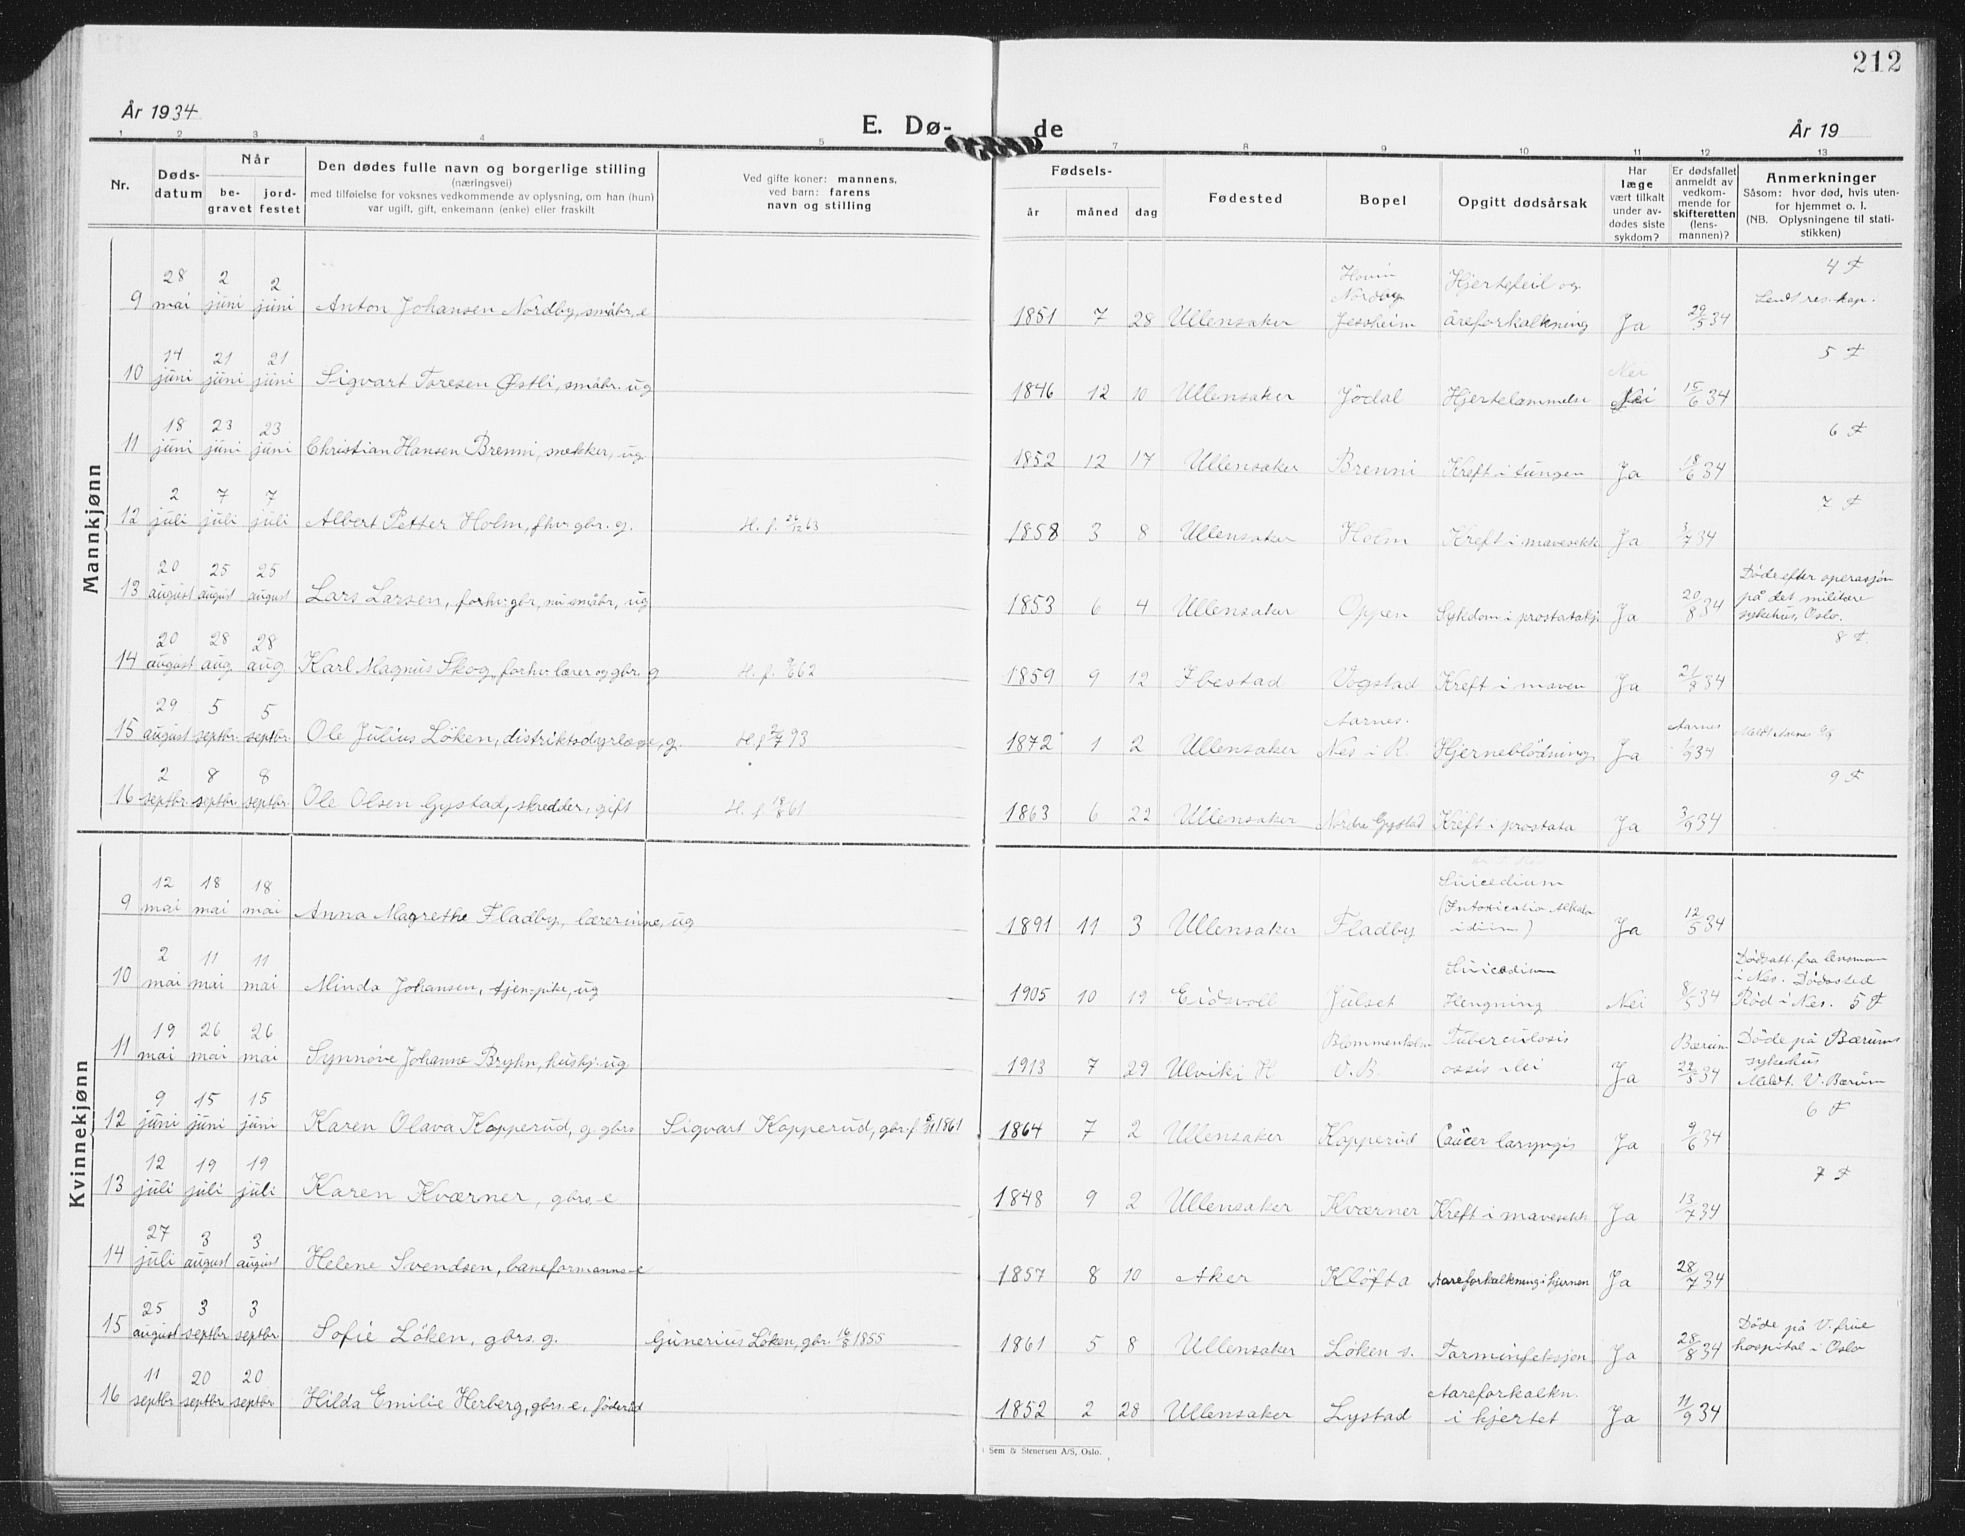 212
År 1934
E. Dø-
de
År 19
1 2 3 4 5 7 8 9 10 11 12 13
Nr.
Døds-
datum
Når
be-
gravet
jord-
festet
Den dødes fulle navn og borgerlige stilling
(næringsvei)
med tilføielse for voksnes vedkommende av oplysning, om han (hun)
var ugift, gift, enkemann (enke) eller fraskilt
Ved gifte koner: mannens,
ved barn: farens
navn og stilling
Fødsels-
år måned dag
Fødested
Bopel
Opgitt dødsårsak
Har
læge
vært tilkalt
under av-
dødes siste
sykdom?
Er dødsfallet
anmeldt av
vedkom-
mende for
skifteretten
(lens-
mannen)?
Anmerkninger
Såsom: hvor død, hvis uten-
for hjemmet o. l.
(NB. Oplysningene til stati-
stikken)
Mannkjønn
9 28 mai 2 juni 2 juni Anton Johansen Nordby, småbr. e 1851 7 28 Ullensaker Hovin Nordby Jessheim Hjertefeil og åreforkalkning Ja 29/5 34 4 F
10 14 juni 21 juni 21 juni Sigvart Toresen Østli, småbr. ug 1846 12 10 Ullensaker Jödal Hjertelammelse Nei Nei 15/6 34 5 F
11 18 juni 23 juni 23 juni Christian Hansen Brenni, snekker, ug. 1852 12 17 Ullensaker Brenni Kreft i tungen Ja 18/6 34 6 F
12 2 juli 7 juli 7 juli Albert Petter Holm, fhv. gbr. g. H. f. 26/12 63 1858 3 8 Ullensaker Holm Kreft i mavesekk Ja 3/7 34 7 F
13 20 august 25 august 25 august Lars Larsen, forhv. gbr, nu småbr, ug 1853 6 4 Ullensaker Oppen Sykdom i prostatakj. Ja 20/8 34 Döde efter operasjon
på det militære
sykehus, Oslo.
8 F.
14 20 august 28 aug. 28 aug. Karl Magnus Skog, forhv. lærer og gbr. g H. f. 62 1859 9 12 Ibestad Vogstad Kreft i maven Ja 21/8 34
15 29 august 5 septbr. 5 septbr. Ole Julius Löken, distriktsdyrlæge, g. H. f 7 93 1872 1 2 Ullensaker Aarnes. Nes i R. Hjerneblödning. Ja Aarnes 1/9 34 Meldt Aarnes
9 F
16 2 septbr 8 septbr 8 septbr. Ole Olsen Gystad, skredder, gift H. f. 61 1863 6 22 Ullensaker Nordre Gystad Kreft i prostata Ja 3/9 34
Kvinnekjønn
9 12 mai 18 mai 18 mai Anna Magrethe Fladby, lærerinne, ug 1891 11 3 Ullensaker Fladby Suicedium (Intoxicatio Alkalo idium) Ja 12/5 34
10 2 mai 11 mai 11 mai Minda Johansen, tjen.pike, ug 1905 10 19 Eidsvoll Julset Suicedium Hengning Nei 8/5 34 Dödsatt. fra lensmann
i Nes. Dödssted
Röd i Nes. 5 F
11 19 mai 26 mai 26 mai Synnöve Johanne Bryhn, huskj. ug 1913 7 29 Ulvik i H Blommenholm V. B. Tuberculosis ossis ilei Ja Bærum 22/5 34 Döde på Bærums
sykehus
Meldt. V. Bærum
12 9 juni 15 juni 15 juni Karen Olava Kopperud, g. gbrs Sigvart Kopperud, gbr. f 5/11 1861 1864 7 2 Ullensaker Kopperud Caucer laryngis Ja 9/6 34 6 F
13 12 juli 19 juli 19 juli Karen Kværner, gbrs. e 1848 9 2 Ullensaker Kværner Kreft i mavesekk Ja 13/7 34 7 F
14 27 juli 3 august 3 august Helene Svendsen, baneformanns-e 1857 8 10 Aker Klöfta Aareforkalkning i hjernen Ja 28/7 34
15 25 august 3 septbr 3 septbr Sofie Löken, gbrs. g. Gunerius Löken, gbr. 16/8 1855 1861 5 8 Ullensaker Löken s. Tarminfeksjon Ja 28/8 34 Döde på V. frue
hospital i Oslo
16 11 septbr 20 septbr 20 septbr Hilda Emilie Herberg, gbrs. e, föderåd 1852 2 28 Ullensaker Lystad Aareforkalkn. i hjertet Ja 11/9 34
Sem & Stenersen A/S, Oslo.